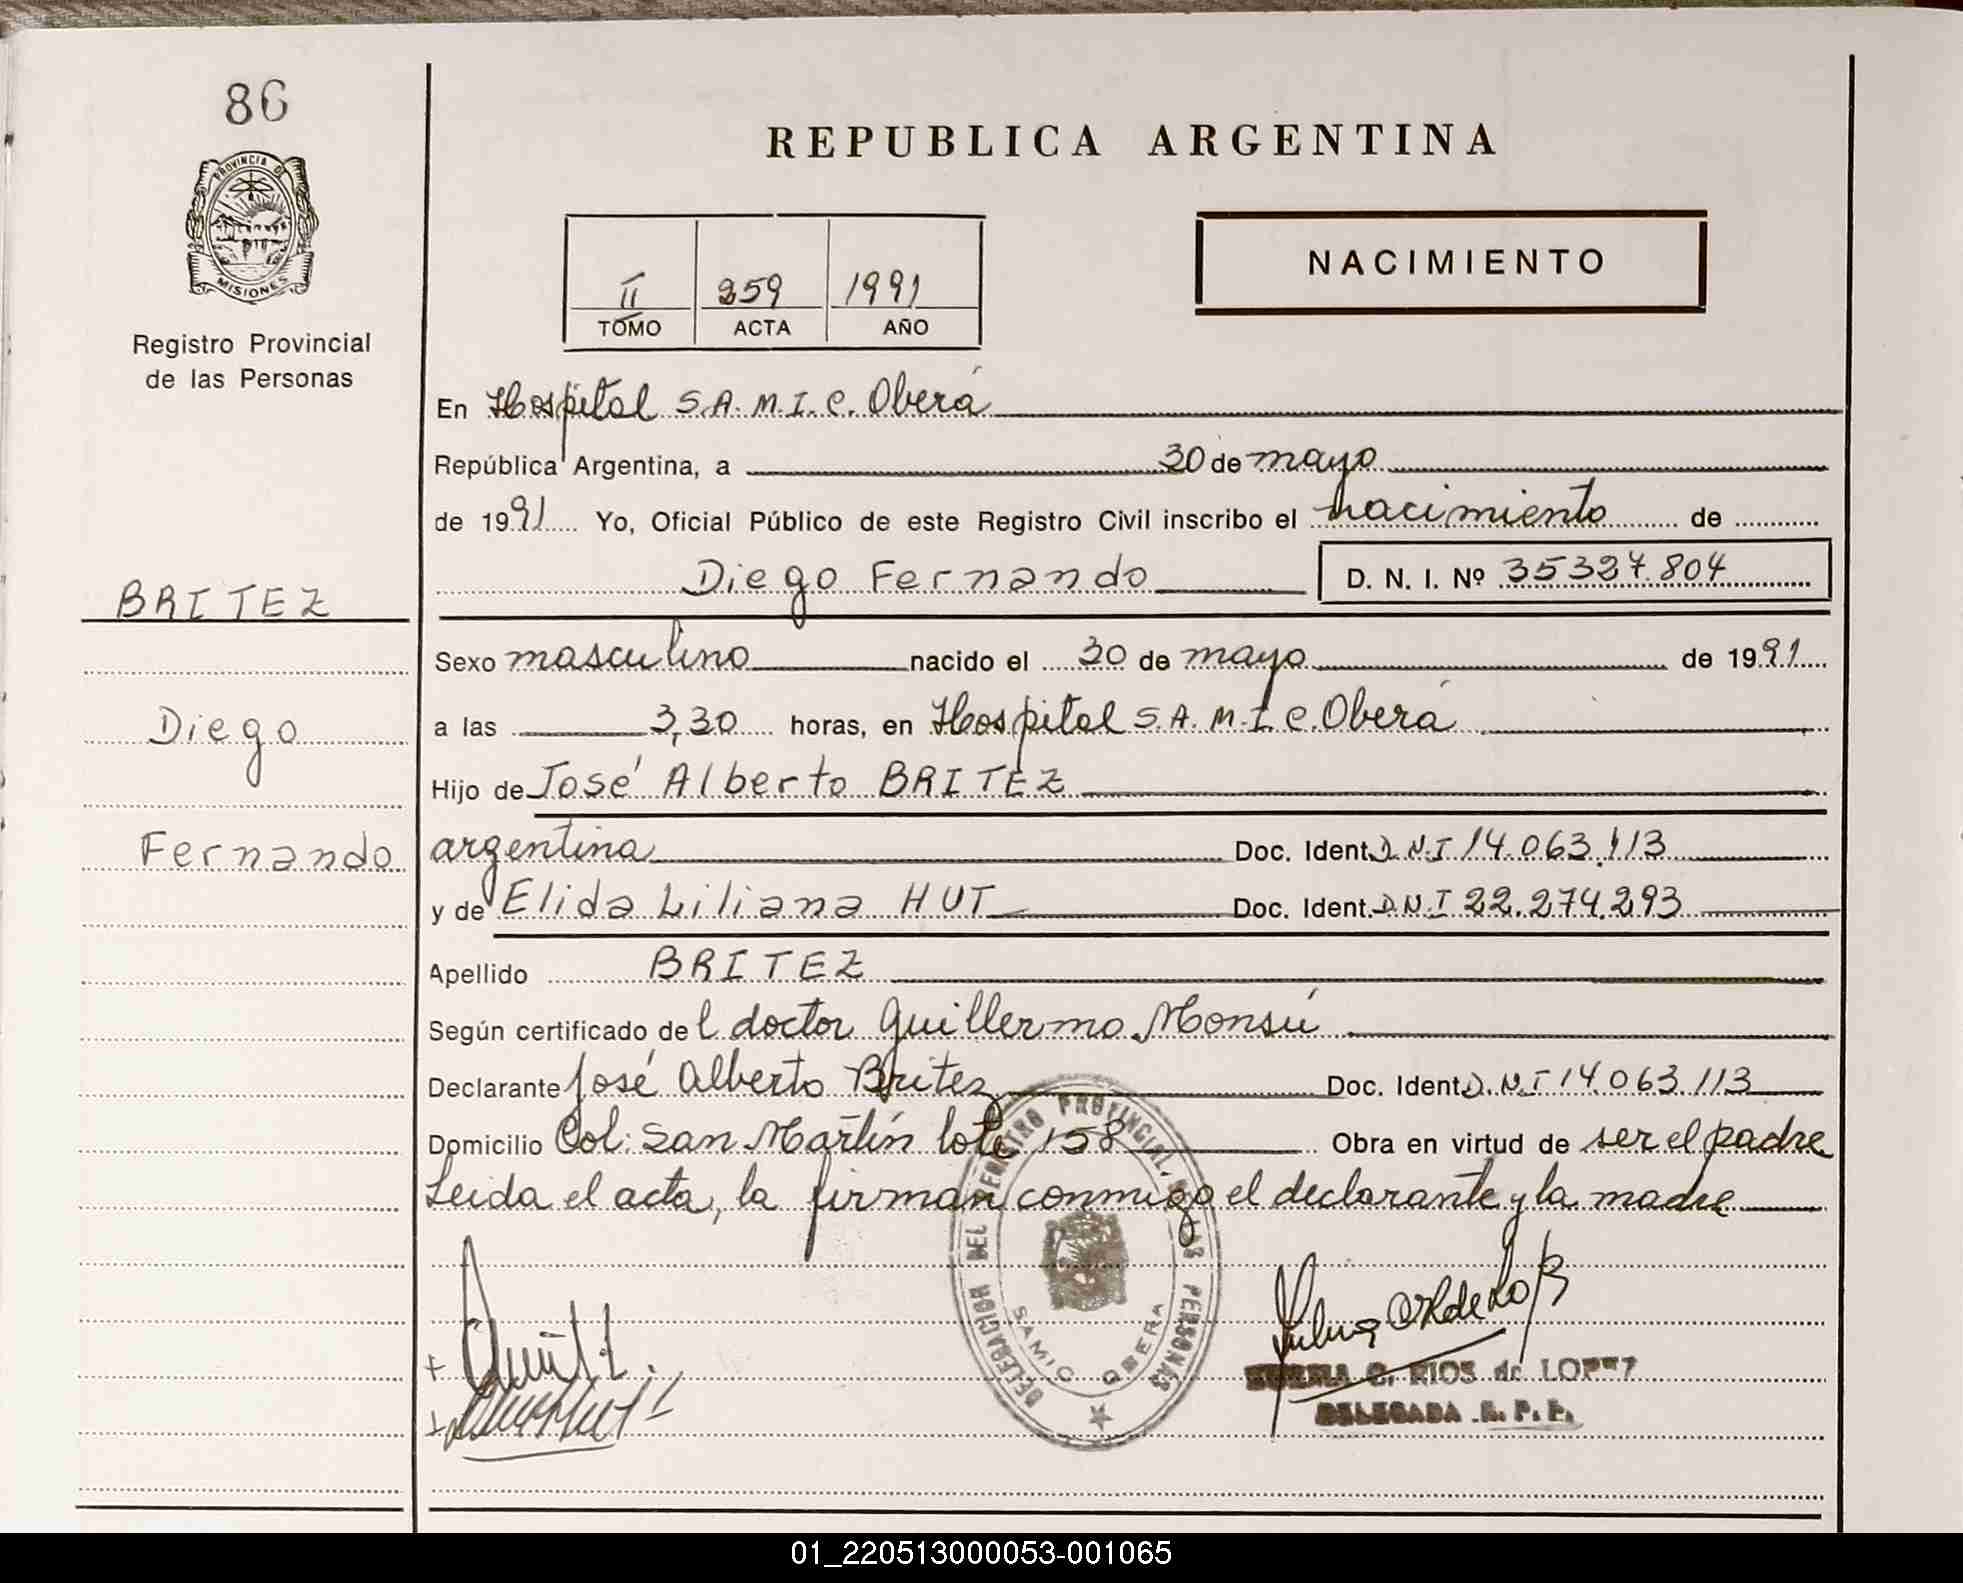 86
PROVINCIA D
MISIONES
Registro Provincial
de las Personas
REPUBLICA ARGENTINA
II 259 1991
TOMO ACTA AÑO
NACIMIENTO
En Hospital S.A.M.I.C. Oberá
República Argentina, a 30 de mayo
de 1991 Yo, Oficial Público de este Registro Civil inscribo el nacimiento de
Diego Fernando D. N. I. Nº 35327804
BRITEZ
Diego
Fernando
Sexo masculino nacido el 30 de mayo de 1991
a las 3,30 horas, en Hospital S.A.M.I.C. Oberá
Hijo de José Alberto BRITEZ
argentina Doc. Ident. D.N.I 14.063.113
y de Elida Liliana HUT Doc. Ident. D.N.I 22.274.293
Apellido BRITEZ
Según certificado del doctor Guillermo Monsú
Declarante José Alberto Britez Doc. Ident. D.N.I 14.063.113
Domicilio Col. San Martín lote 158 Obra en virtud de ser el padre
Leida el acta, la firman conmigo el declarante y la madre
DELEGACION DEL REGISTRO PROVINCIAL LAS PERSONAS
SAMIC OBERA
C. RIOS de LOPEZ
DELEGADA R. P. P.
01_220513000053-001065